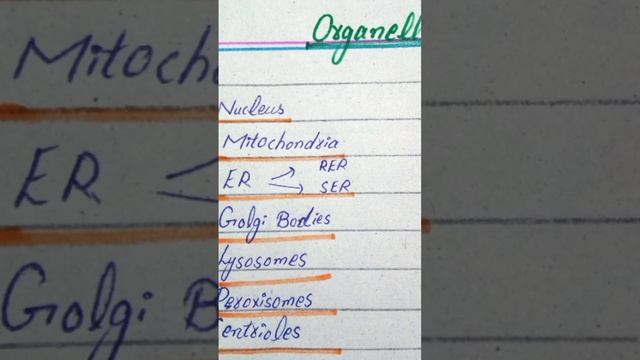 Organell
Nucleus
Mitochondria
ER RER
SER
Golgi Bodies
Lysosomes
Peroxisomes
entrioles
Mitoch
ER
Golgi B